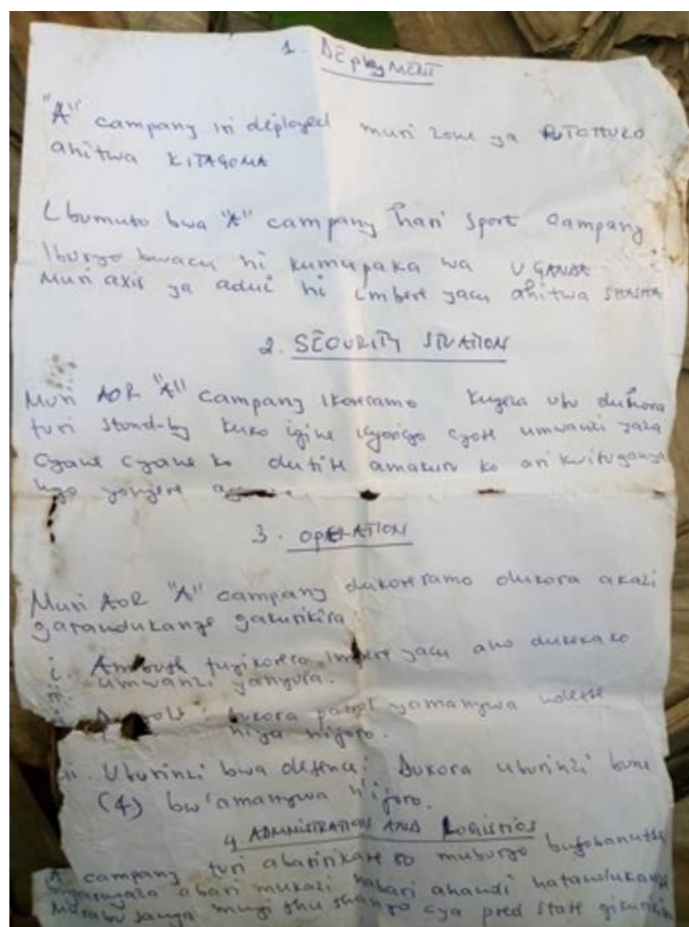 1. DEploYMENT
"A" campany iri deployed muri zone ya RUTCHURO
ahitwa KITAGOMA
Ibumoso bwa "A" campany hari Sport campany
Iburyo bwacu ni kumupaka wa UGANDA
Muri axis ya adui ni imbere yacu ahitwa SHASHA
2. SECURITY SITUATION
Muri AOR "A" campany ikoreramo kugeza ubu dukora
turi stand-by kuko igihe icyaricyo cyose umwanzi yaza
cyane cyane ko dufite amakuru ko ari kwitegura
ngo yongere
3. OPERATION
Muri AOR "A" campany dukoreramo dukora akazi
gatandukanye gakurikira
i. Ambush tuzikorera imbere yacu aho dukeka ko
umwanzi yanyura.
ii. dukora patrol yamanywa ndetse
niya nijoro.
iii. Uburinzi bwa defence: Dukora uburinzi bune
(4) bw'amanywa n'ijoro.
4 ADMINISTRATION AND LOGISTICS
A campany turi abasirikare 80 muburyo busobanutse
abari mukazi nabari ahandi hatandukanye
cya pred state gikurikira